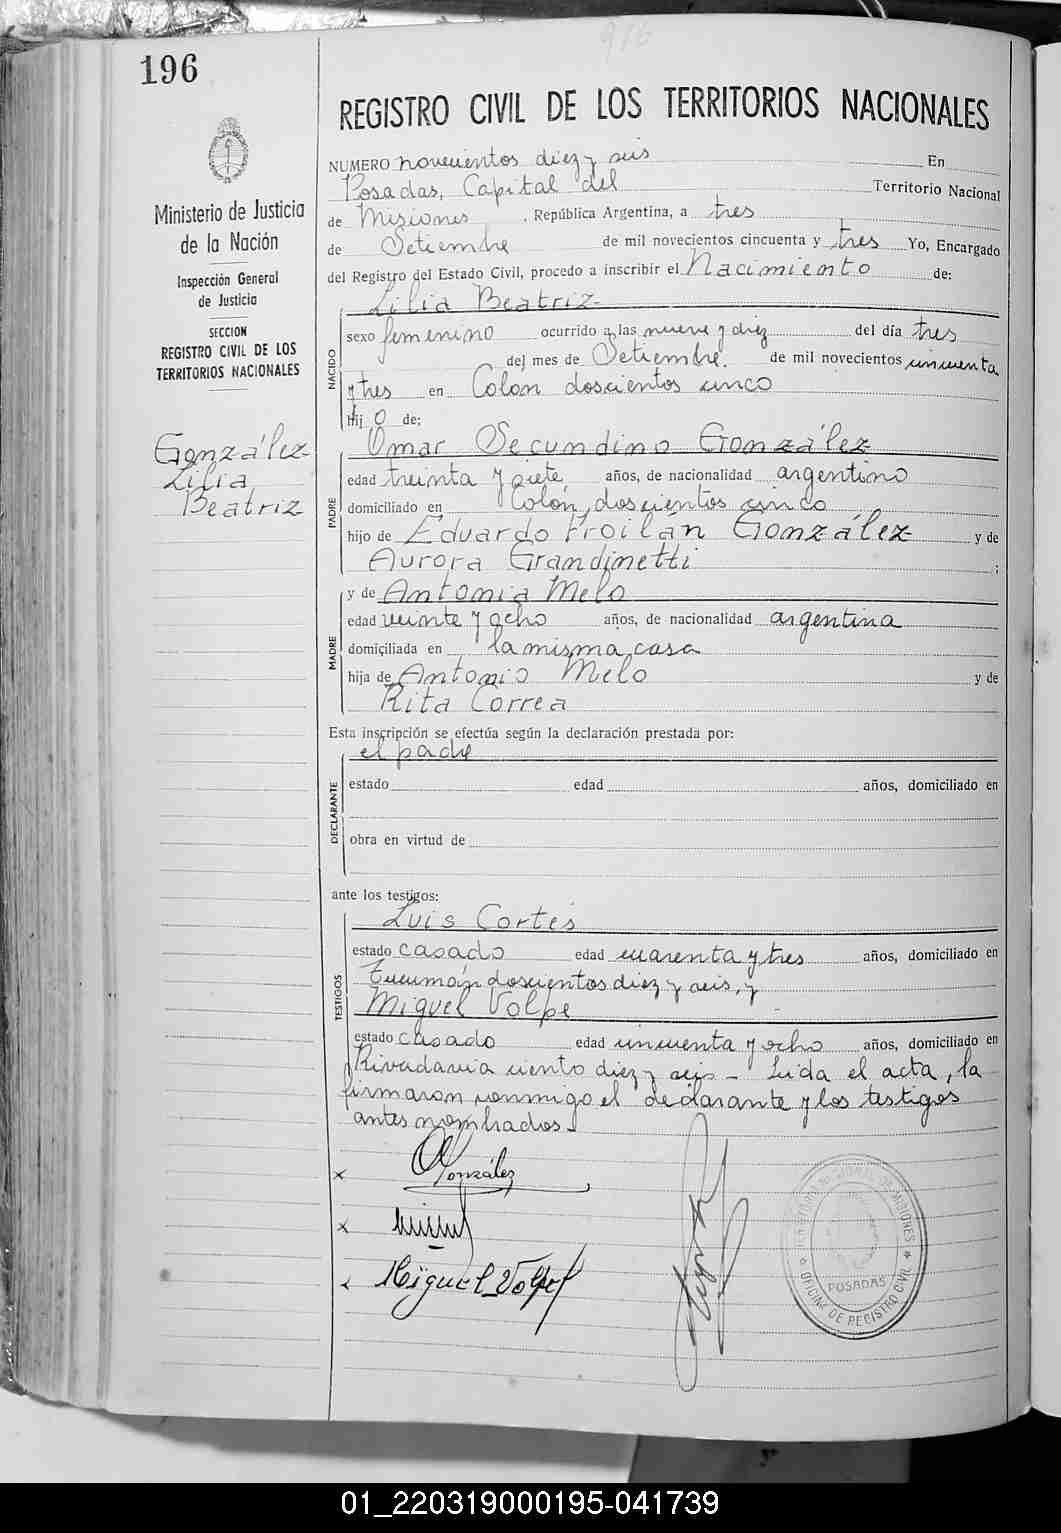 916
196
REGISTRO CIVIL DE LOS TERRITORIOS NACIONALES
Ministerio de Justicia
de la Nación
Inspección General
de Justicia
SECCION
REGISTRO CIVIL DE LOS
TERRITORIOS NACIONALES
González
Lilia
Beatriz
NUMERO novecientos diez y seis En
Posadas, Capital del Territorio Nacional
de Misiones, República Argentina, a tres
de Setiembre de mil novecientos cincuenta y tres Yo, Encargado
del Registro del Estado Civil, procedo a inscribir el Nacimiento de:
Lilia Beatriz
NACIDO
sexo femenino ocurrido a las nueve y diez del día tres
del mes de Setiembre. de mil novecientos cincuenta
y tres en Colon doscientos cinco
Hij o de:
Omar Secundino González
PADRE
edad treinta y siete años, de nacionalidad argentino
domiciliado en Colon, doscientos cinco
hijo de Eduardo Froilan González y de
Aurora Grandinetti ;
y de Antonia Melo
MADRE
edad veinte y ocho años, de nacionalidad argentina
domiciliada en la misma casa
hija de Antonio Melo y de
Rita Correa
Esta inscripción se efectúa según la declaración prestada por:
el padre
DECLARANTE
estado edad años, domiciliado en
obra en virtud de
ante los testigos:
Luis Cortés
TESTIGOS
estado casado edad cuarenta y tres años, domiciliado en
Tucumán doscientos diez y seis, y
Miguel Volpe
estado casado edad cincuenta y ocho años, domiciliado en
Rivadavia ciento diez y seis - Leida el acta, la
firmaron conmigo el declarante y los testigos
antes nombrados.
x O González
x
Miguel Volpe
TERRITORIO NACIONAL DE MISIONES
POSADAS
* OFICINA DE REGISTRO CIVIL *
01_220319000195-041739